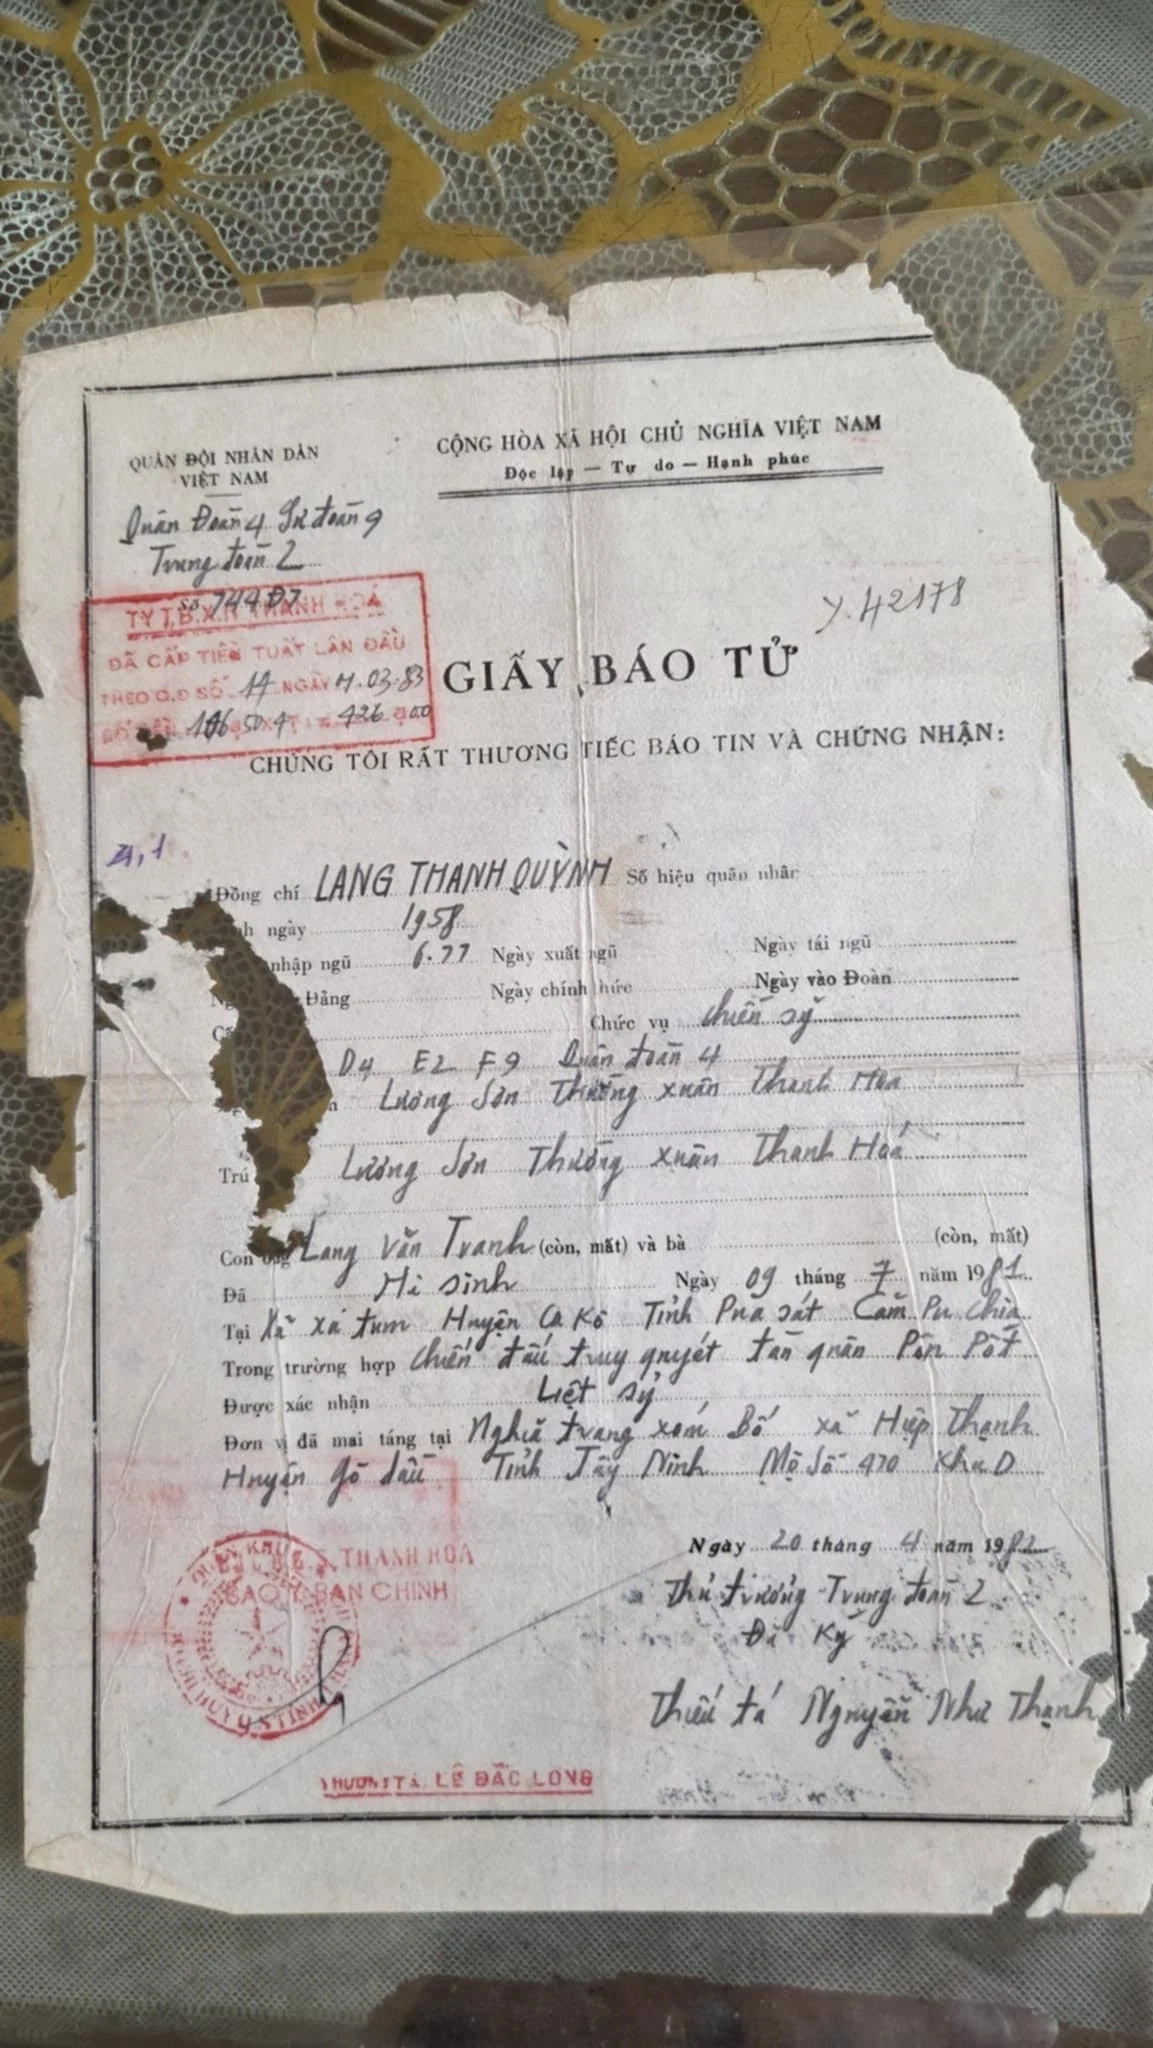 QUÂN ĐỘI NHÂN DÂN
VIỆT NAM
CỘNG HÒA XÃ HỘI CHỦ NGHĨA VIỆT NAM
Độc lập — Tự do — Hạnh phúc
Quân Đoàn 4 Sư đoàn 9
Trung đoàn 2
Số 744 Đ7
TY T.B.X.H THANH HOÁ
ĐÃ CẤP TIỀN TUẤT LẦN ĐẦU
THEO Q.Đ SỐ 14 NGÀY 7.03.83
Y.42178
GIẤY BÁO TỬ
CHÚNG TÔI RẤT THƯƠNG TIẾC BÁO TIN VÀ CHỨNG NHẬN:
Đồng chí LANG THANH QUỲNH Số hiệu quân nhân
ngày 1958
nhập ngũ 6.77 Ngày xuất ngũ Ngày tái ngũ
Đảng Ngày chính thức Ngày vào Đoàn
Chức vụ Chiến sỹ
D4 E2 F9 Quân đoàn 4
Lương Sơn Thường Xuân Thanh Hóa
Trú Lương Sơn Thường Xuân Thanh Hoá
Con ông Lang Văn Tranh (còn, mất) và bà (còn, mất)
Đã Hi sinh Ngày 09 tháng 7 năm 1981
Tại Xã xá tum Huyện Ca Kô Tỉnh Pua sát Căm Pu Chia
Trong trường hợp Chiến đấu truy quyét tàn quân Pôn Pốt
Được xác nhận Liệt sỹ
Đơn vị đã mai táng tại Nghĩa trang xóm Bố xã Hiệp Thạnh
Huyện Gò dầu Tỉnh Tây Ninh Mộ Số 470 Khu D
Ngày 20 tháng 4 năm 1982
Thủ trưởng Trung đoàn 2
Đã Ký
Thiếu tá Nguyễn Như Thạnh
THANH HOÁ
SAO Y BẢN CHÍNH
LÊ ĐẮC LONG